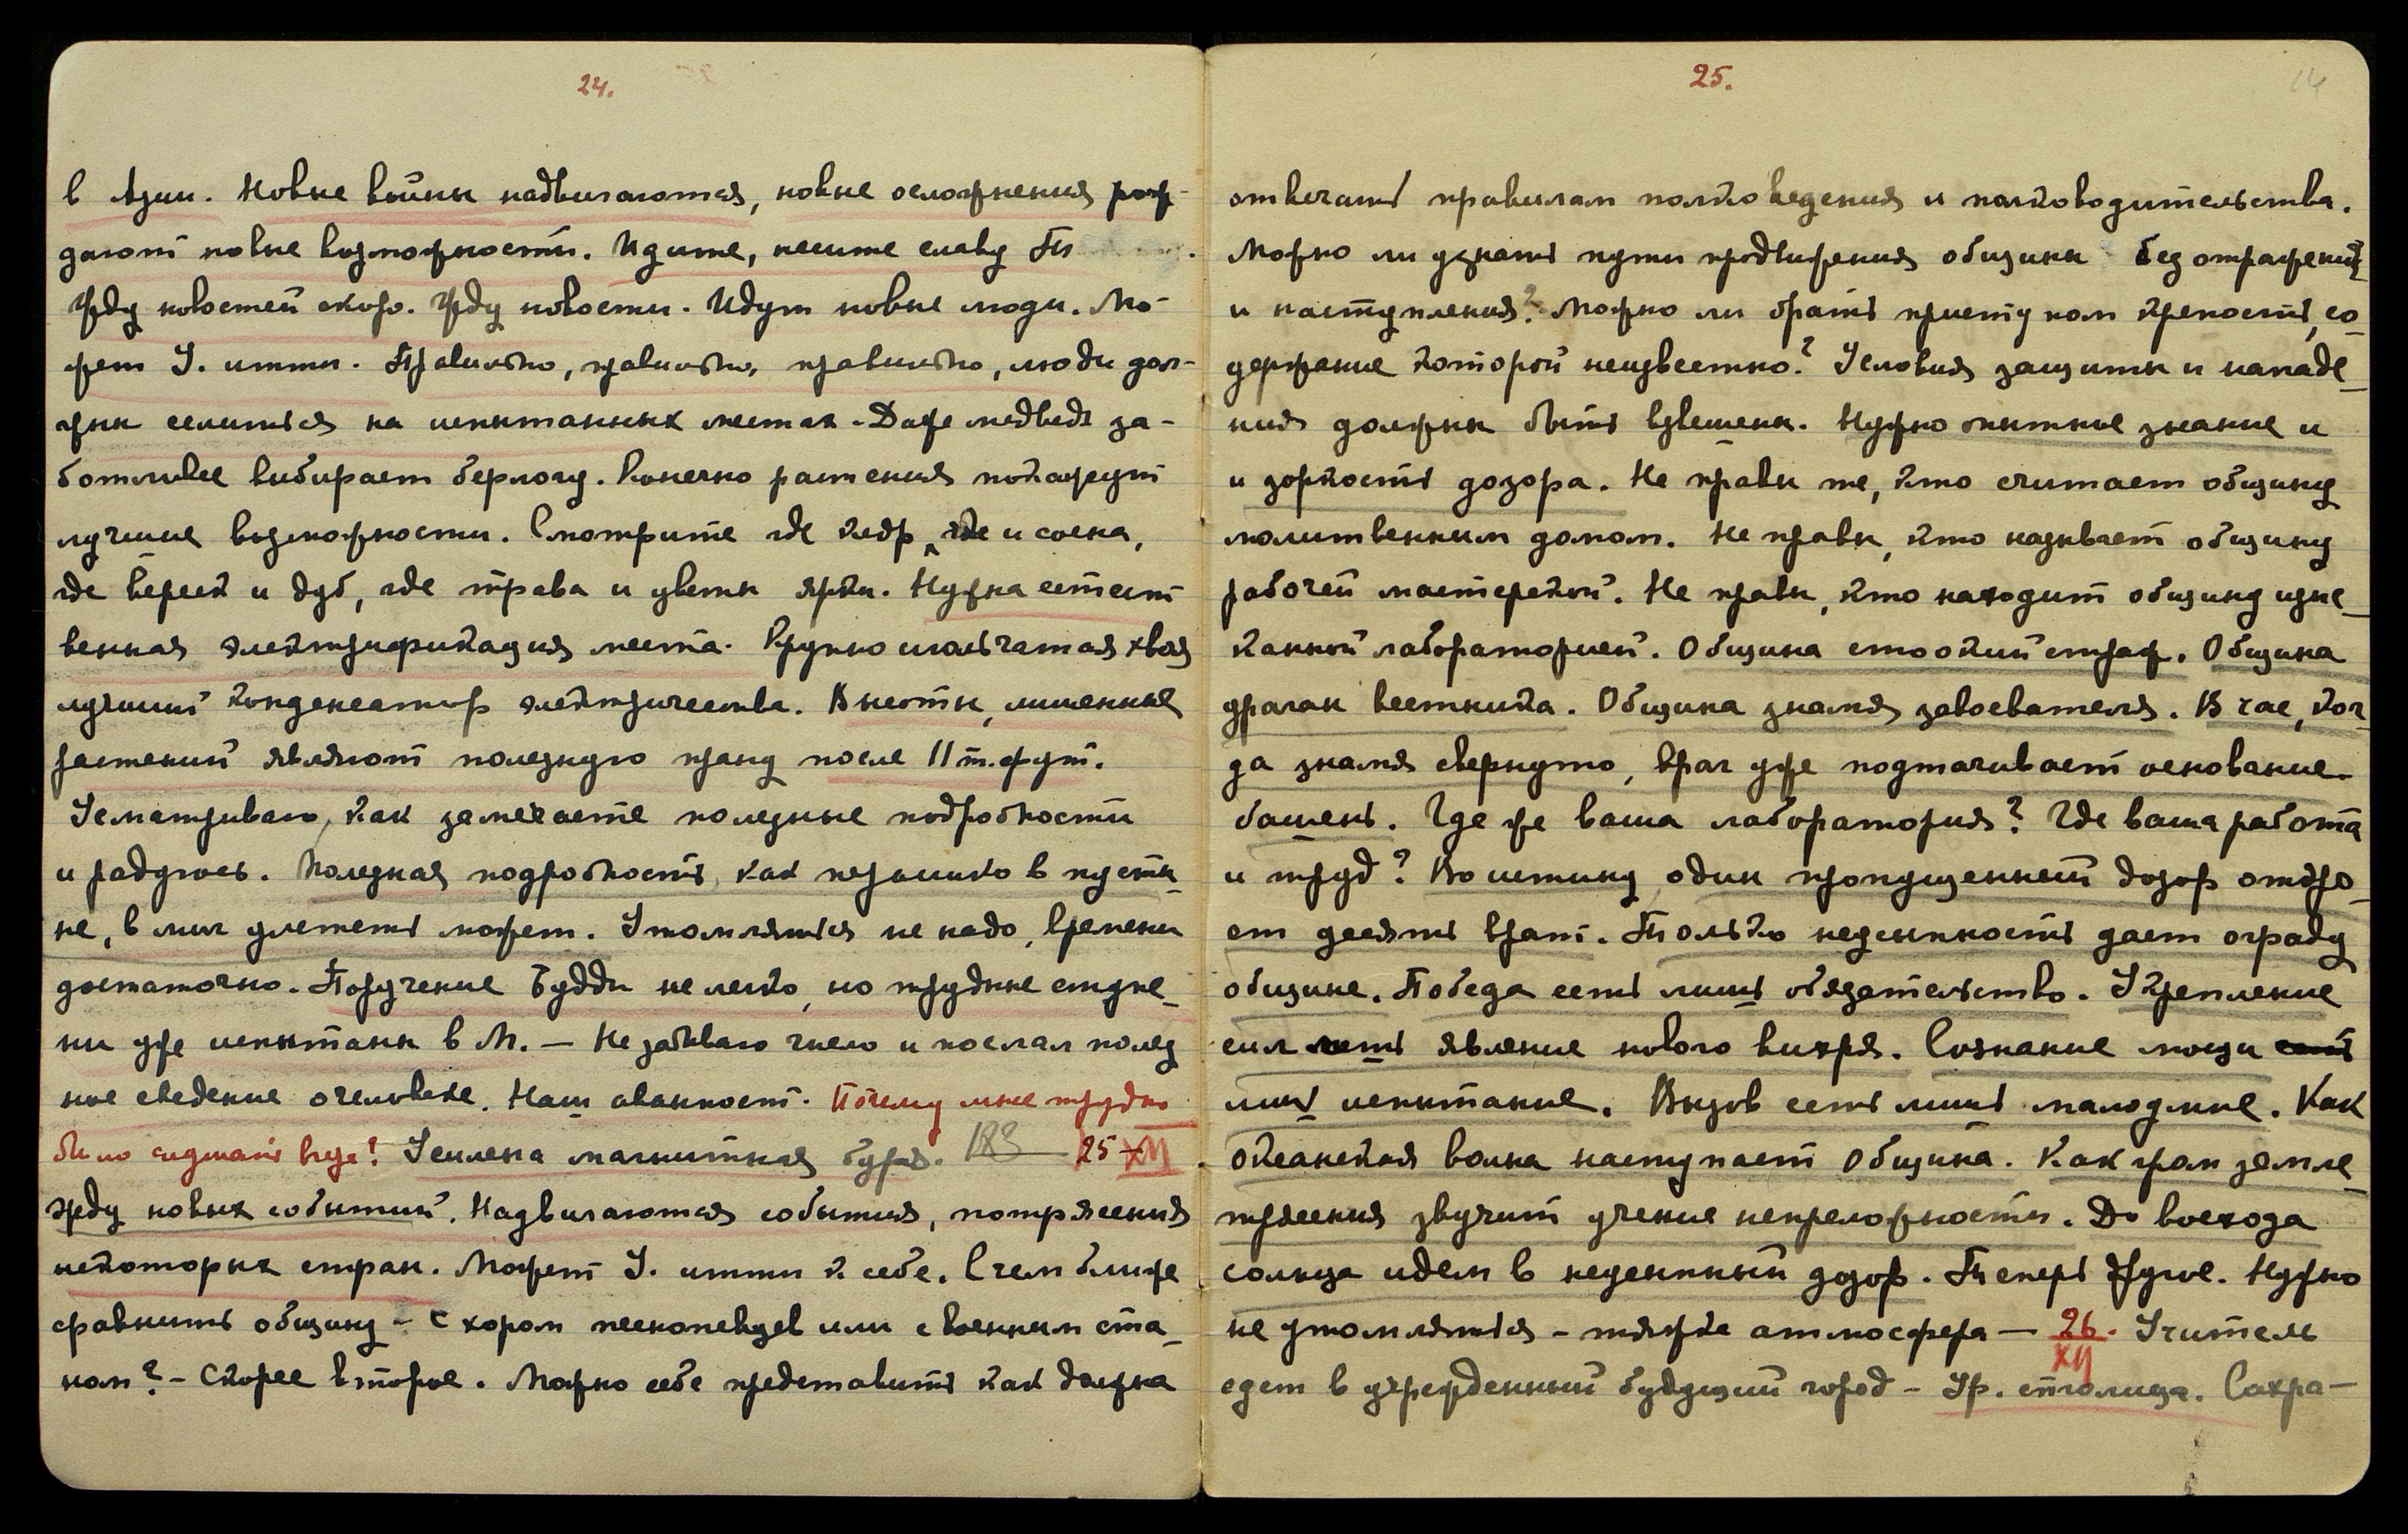 24.
в Азии. Новые войны надвигаются, новые осложнения рож-
дают новые возможности. Идите, несите славу
Жду новостей скоро. Жду новости. Идут новые люди. Мо-
жет У. итти. Правильно, правильно, правильно, люди дол-
жны селиться на испытанных местах. Даже медведь за-
ботливее выбирает берлогу. Конечно растения покажут
лучшие возможности. Смотрите где кедр, где и сосна,
где вереск и дуб, где трава и цветы ярки. Нужна естест
венная электрификация места. Крупно игольчатая хвоя
лучший конденсатор электричества. Высоты, лишенные
растений являют полезную прану после 11 т. фут.
Усматриваю, как замечаете полезные подробности
и радуюсь. Полезная подробность, как перышко в пусты_
не, в миг улететь может. Утомляться не надо, времени
достаточно. Поручение Будды не легко, но трудные ступе_
ни уже испытаны в М. — Не забываю число и послал полез
ное сведение о человеке. Наш аванпост. Почему мне трудно
было сидеть вчера? Усилена магнитная буря. 183 25 XII
Жду новых событий. Надвигаются события, потрясения
некоторых стран. Может У. итти к себе. С чем ближе
сравнить общину – с хором песнопевцев или с военным ста_
ном? – Скорее второе. Можно себе представить как должна
25.
14
отвечать правилам полковедения и полководительства.
Можно ли узнать пути продвижения общины без отражения
и наступления? Можно ли брать приступом крепость, со_
держание которой неизвестно? Условия защиты и нападе_
ния должны быть взвешены. Нужно опытное знание и
и зоркость дозора. Не правы те, кто считает общину
молитвенным домом. Не правы, кто называет общину
рабочей мастерской. Не правы, кто находит общину изыс_
канной лабораторией. Община стоокий страж. Община
ураган вестника. Община знамя завоевателя. В час, ког
да знамя свернуто, враг уже подтачивает основание
башень. Где же ваша лаборатория? Где ваша работа
и труд? Воистину один пропущенный дозор откро_
ет десять врат. Только недремность дает ограду
общине. Победа есть лишь обязательство. Укрепление
сил есть явление нового вихря. Сознание мощи есть
лишь испытание. Вызов есть лишь малодушие. Как
океанская волна наступает Община. Как гром земле_
трясения звучит учение непреложности. До восхода
солнца идем в неусыпный дозор. Теперь другое. Нужно
не утомляться – тяжка атмосфера — 26. XII Учитель
едет в учрежденный будущий город – Ур. столица. Сохра—